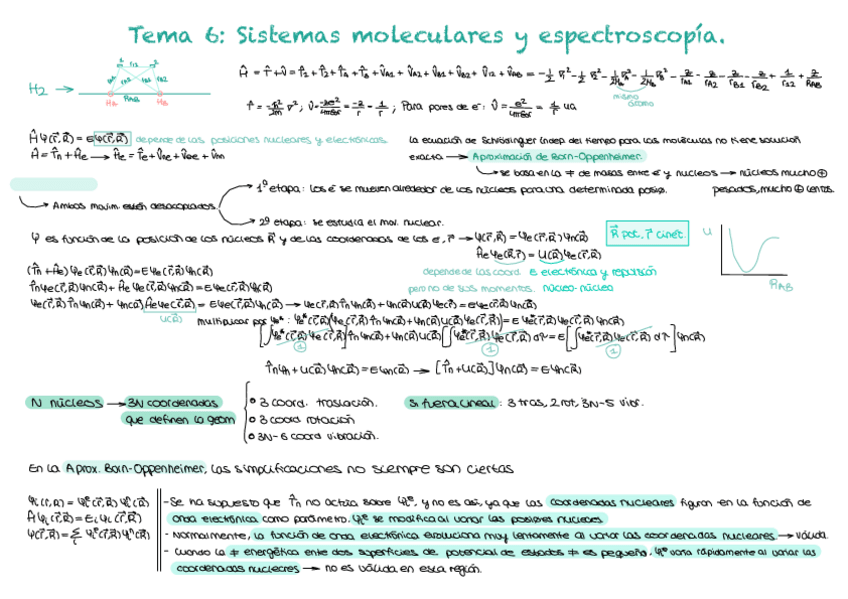 Tema 6: Sistemas moleculares y espectroscopía.
H₂ →
Ĥ = T̂ + V̂ = T̂₁ + T̂₂ + T̂A + T̂B + V̂A1 + V̂A2 + V̂B1 + V̂B2 + V̂12 + V̂AB =
mismo átomo
Para pares de e⁻:
Ĥψ(r⃗,R⃗) = Eψ(r⃗,R⃗) depende de las posiciones nucleares y electrónicas.
Ĥ = T̂n + Ĥe → Ĥe = T̂e + V̂ne + V̂ee + V̂nn
La ecuación de Schrödinger indep. del tiempo para las moléculas no tiene solución
exacta → Aproximación de Born-Oppenheimer.
→ se basa en la ≠ de masas entre e⁻ y núcleos → núcleos mucho ⊕
pesados, mucho ⊕ lentos.
→ Ambos movim. están desacoplados
1ª etapa: los e⁻ se mueven alrededor de los núcleos para una determinada posiç.
2ª etapa: se estudia el mov. nuclear.
ψ es función de la posición de los núcleos R⃗ y de las coordenadas de los e⁻, r⃗ → ψ(r⃗,R⃗) = ψe(r⃗,R⃗) ψn(R⃗)
Ĥeψe(R⃗,r⃗) = U(R⃗)ψe(r⃗,R⃗)
R⃗ pot, r⃗ cinét.
U
RAB
depende de las coord. E electrónica y repulsión
pero no de sus momentos. núcleo-núcleo
(T̂n + Ĥe) ψe(r⃗,R⃗) ψn(R⃗) = Eψe(r⃗,R⃗) ψn(R⃗)
T̂nψe(r⃗,R⃗) ψn(R⃗) + Ĥe ψe(r⃗,R⃗) ψn(R⃗) = Eψe(r⃗,R⃗) ψn(R⃗)
ψe(r⃗,R⃗) T̂nψn(R⃗) + ψn(R⃗) Ĥeψe(r⃗,R⃗) = Eψe(r⃗,R⃗) ψn(R⃗) → ψe(r⃗,R⃗) T̂nψn(R⃗) + ψn(R⃗) U(R⃗) ψe(r⃗,R⃗) = Eψe(r⃗,R⃗) ψn(R⃗)
U(R⃗)
multiplicar por ψe*:
T̂nψn + U(R⃗) ψn(R⃗) = Eψn(R⃗) → [T̂n + U(R⃗)] ψn(R⃗) = Eψn(R⃗)
N núcleos → 3N coordenadas
que definen la geom
3 coord. traslación.
3 coord rotación
3N-6 coord vibración.
Si fuera lineal: 3 tras, 2 rot, 3N-5 vibr.
En la Aprox. Born-Oppenheimer, las simplificaciones no siempre son ciertas
- Se ha supuesto que T̂n no actúa sobre ψiᵉ, y no es así, ya que las coordenadas nucleares figuran en la función de
onda electrónica como parámetro. ψiᵉ se modifica al variar las posiciones nucleares
- Normalmente, la función de onda electrónica evoluciona muy lentamente al variar las coordenadas nucleares → válida.
- Cuando la ≠ energética entre dos superficies de potencial de estados ≠ es pequeña, ψiᵉ varía rápidamente al variar las
coordenadas nucleares → no es válida en esta región.